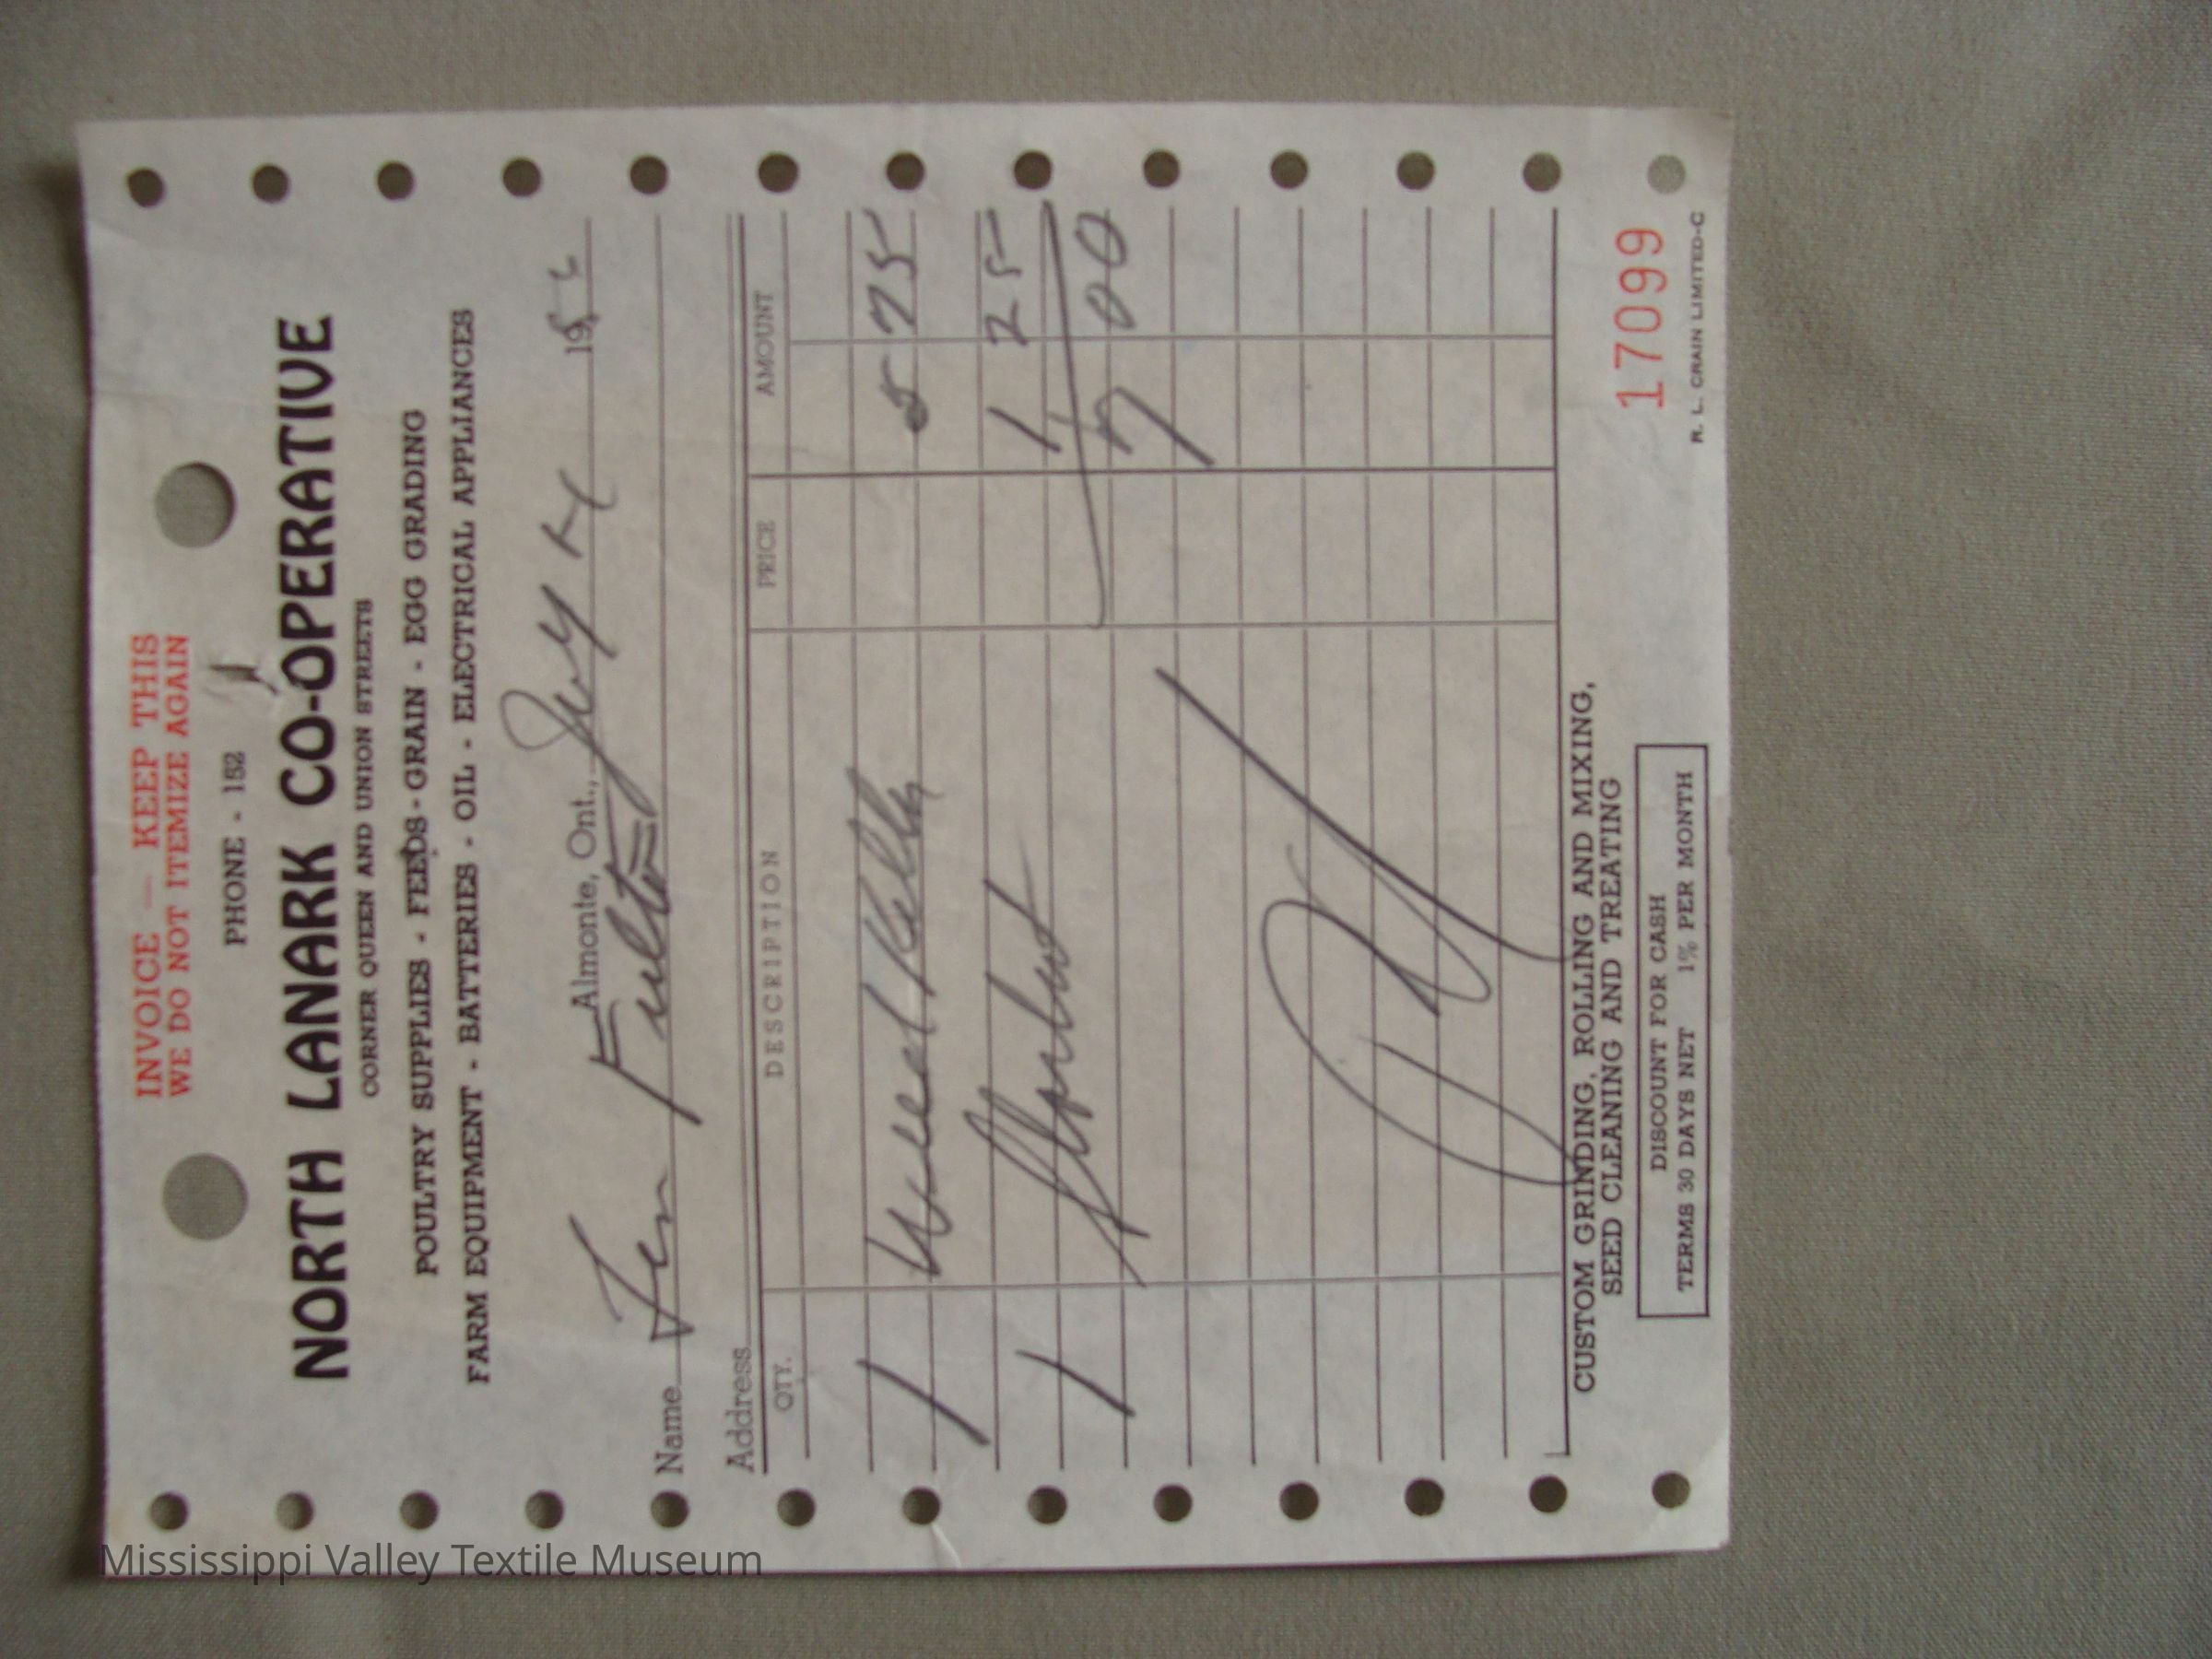 INVOICE — KEEP THIS
WE DO NOT ITEMIZE AGAIN
PHONE - 152
NORTH LANARK CO-OPERATIVE
CORNER QUEEN AND UNION STREETS
POULTRY SUPPLIES - FEEDS - GRAIN - EGG GRADING
FARM EQUIPMENT - BATTERIES - OIL - ELECTRICAL APPLIANCES
Almonte, Ont., July 195
Name Fulton
Address
QTY. DESCRIPTION PRICE AMOUNT
1 Weed 5 75
1 1 25
7 00
CUSTOM GRINDING, ROLLING AND MIXING,
SEED CLEANING AND TREATING
DISCOUNT FOR CASH
TERMS 30 DAYS NET 1% PER MONTH
17099
R. L. CRAIN LIMITED-C
Mississippi Valley Textile Museum